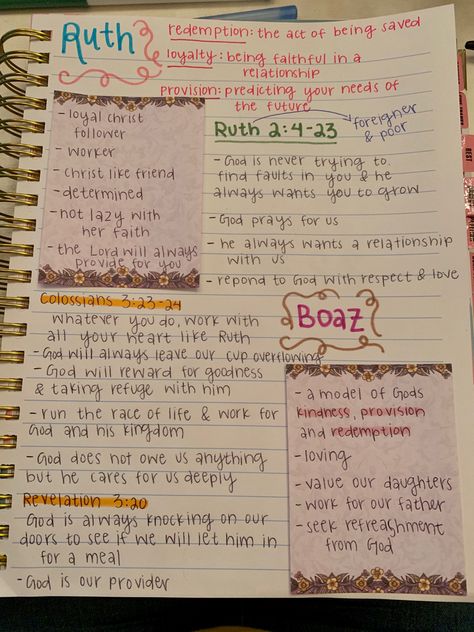 Ruth
redemption: the act of being saved
loyalty: being faithful in a
relationship
provision: predicting your needs of
the future
- loyal christ
follower
- worker
- christ like friend
- determined
- not lazy with
her faith
- the Lord will always
provide for you
Ruth 2:4-23
foreigner
& poor
- God is never trying to
find faults in you & he
always wants you to grow
- God prays for us
- he always wants a relationship
with us
- repond to God with respect & love
Colossians 3:23-24
whatever you do, work with
all your heart like Ruth
- God will always leave our cup overflowing
- God will reward for goodness
& taking refuge with him
- run the race of life & work for
God and his kingdom
- God does not owe us anything
but he cares for us deeply
Revelation 3:20
God is always knocking on our
doors to see if we will let him in
for a meal
- God is our provider
BOaZ
- a model of Gods
kindness, provision
and redemption
- loving
- value our daughters
- work for our father
- seek refreashment
from God